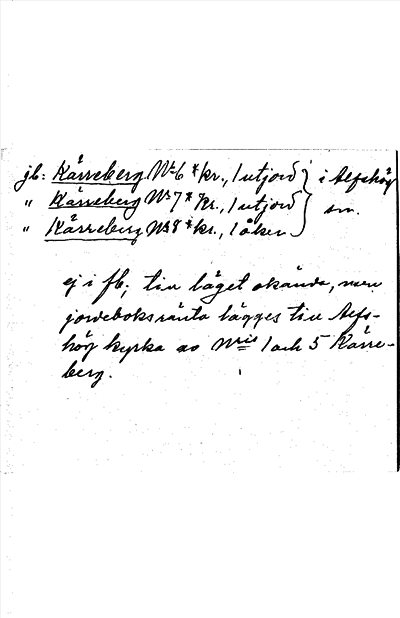 jb: Kärreberg No 6 * kr., 1 utjord } i Alfshög
" Kärreberg No 7 * kr., 1 utjord } sn.
" Kärreberg No 8 * kr., 1 åker }
ej i fb; till läget okända, men
jordeboksränta lägges till Alfs-
hög kyrka av Nris 1 och 5 Kärre-
berg.